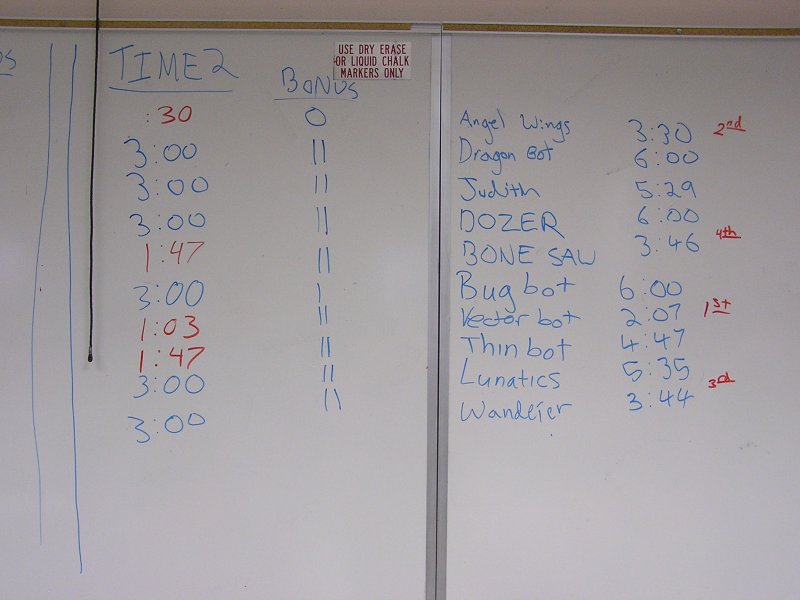 TIME 2
BONUS
USE DRY ERASE
OR LIQUID CHALK
MARKERS ONLY
:30 0
3:00 11
3:00 11
3:00 11
1:47 11
3:00 1
1:03 11
1:47 11
3:00 11
3:00 11
Angel Wings 3:30 2nd
Dragon Bot 6:00
Judith 5:29
DOZER 6:00
BONE SAW 3:46 4th
Bug bot 6:00
Vector bot 2:07 1st
Thin bot 4:47
Lunatics 5:35
Wandeier 3:44 3rd